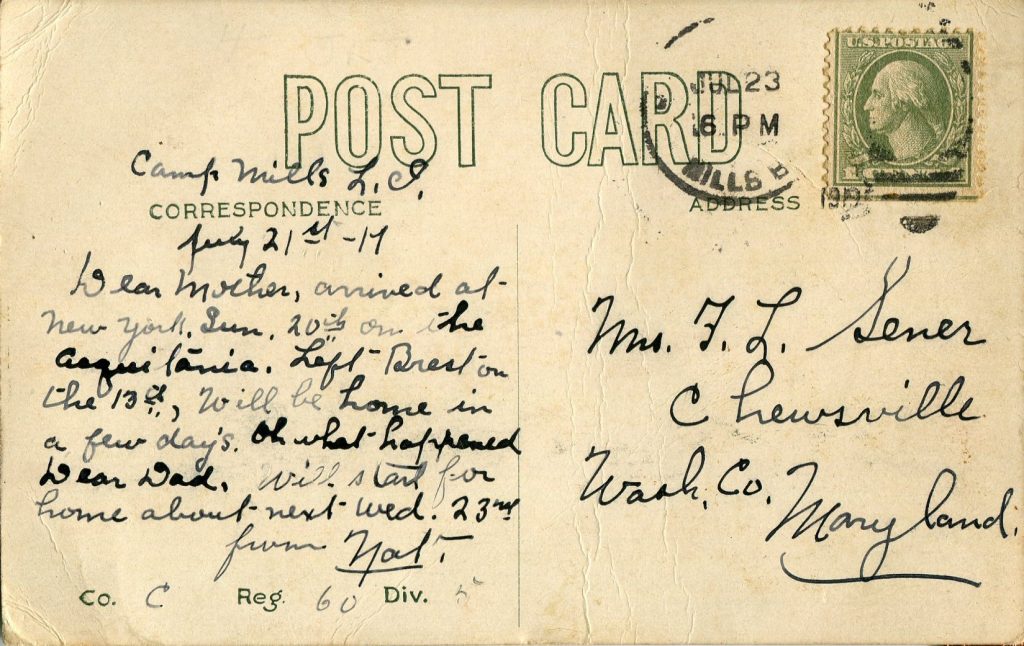 POST CARD
JUL 23
6 PM
MILLS B
1919
U.S. POSTAGE
Camp Mills L. I.
CORRESPONDENCE
ADDRESS
July 21st -19
Dear Mother, arrived at
New York, Sun. 20th on the
Acquitania. Left Brest on
the 13th, Will be home in
a few day's. Oh what happened
Dear Dad. Will start for
home about next Wed. 23rd
from Nat.
Co. C Reg. 60 Div. 5
Mrs. F. L. Sener
Chewsville
Wash. Co.
Maryland.